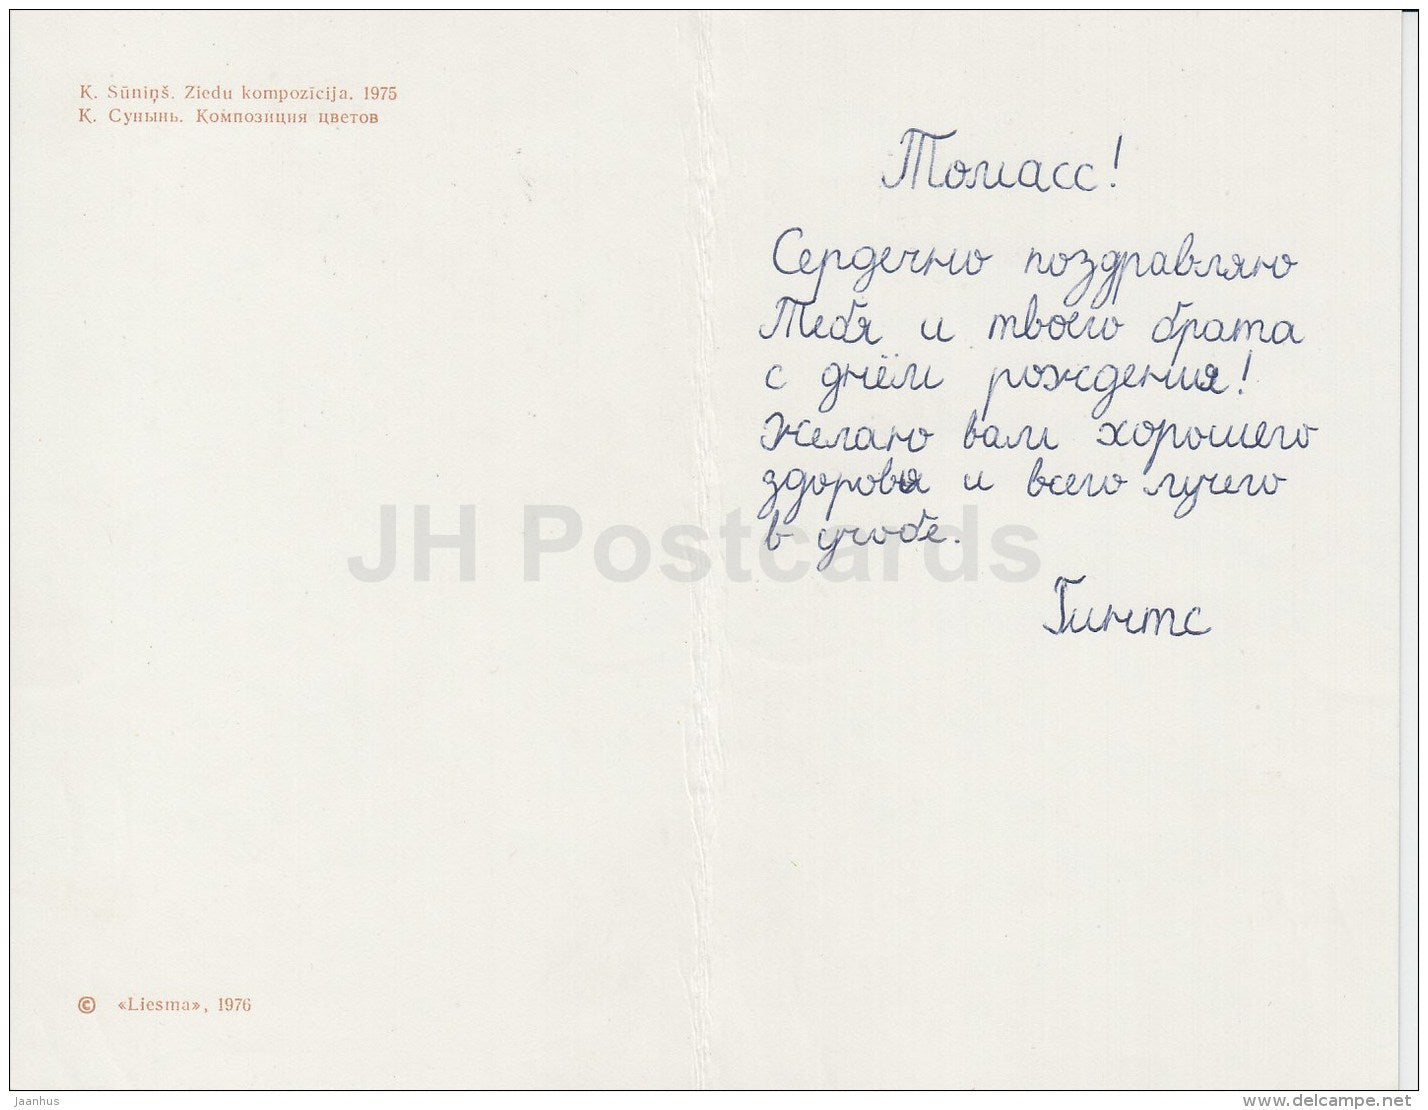 K. Sūniņš. Ziedu kompozīcija. 1975
К. Сунынь. Композиция цветов
Томасс!
Сердечно поздравляю
Тебя и твоего брата
с днём рождения!
Желаю вам хорошего
здоровя и всего лучего
в учобе.
Гинтс
JH Postcards
© «Liesma», 1976
Jaanhus
delcampe.net